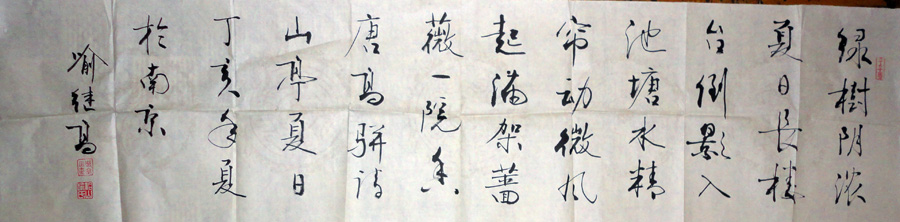 绿树阴浓
夏日长楼
台倒影入
池塘水精
帘动微风
起满架蔷
薇一院香
唐高骈诗
山亭夏日
丁亥年夏
于南京
喻继高